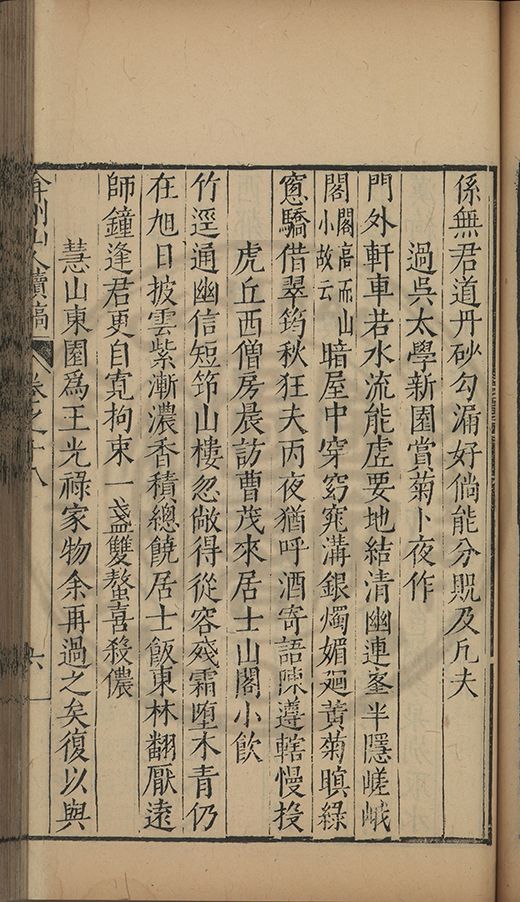 係無君道丹砂勾漏好倘能分貺及凡夫
過吳太學新園賞菊卜夜作
門外軒車若水流能虛要地結清幽連峯半隱嵯峨
閣閣高而山小故云暗屋中穿窈窕溝銀燭媚廻黃菊暝綠
窻驕借翠筠秋狂夫丙夜猶呼酒寄語陳遵轄慢投
虎丘西僧房晨訪曹茂來居士山閣小飲
竹逕通幽信短笻山樓忽敞得從容殘霜墮木青仍
在旭日披雲紫漸濃香積總饒居士飯東林翻厭遠
師鐘逢君更自寬拘束一盞雙螯喜殺儂
慧山東園爲王光祿家物余再過之矣復以與
弇州山人續稿 卷之十八 六